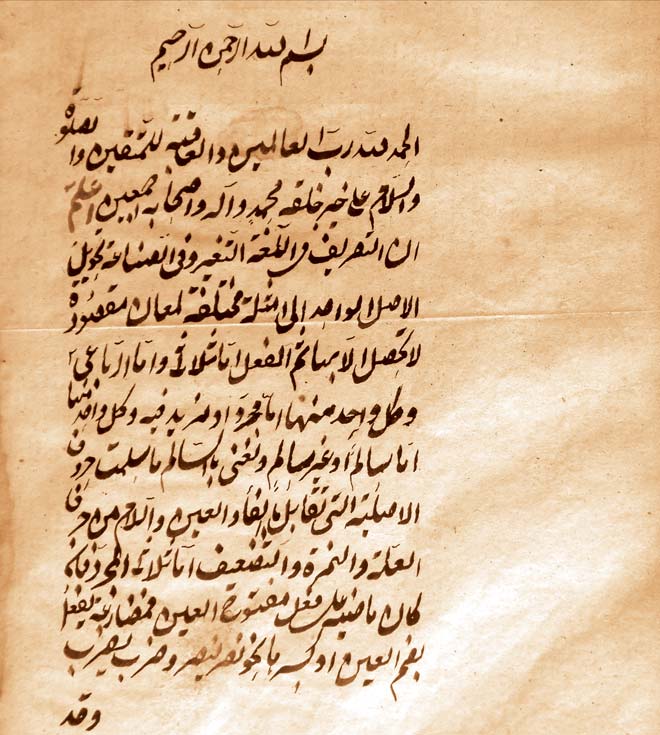 بسم الله الرحمن الرحيم
الحمد لله رب العالمين والعاقبة للمتقين والصلوة
والسلام على خير خلقه محمد وآله واصحابه اجمعين اعلم
ان التصريف فى اللغة التغير وفى الصناعة تحويل
الاصل الواحد الى امثلة مختلفة لمعان مقصودة
لا تحصل الا بها ثم الفعل اما ثلاثى واما رباعى
وكل واحد منهما اما مجرد او مزيد فيه وكل واحد منها
اما سالم او غير سالم ونعنى بالسالم ما سلمت حروفه
الاصلية التى تقابل بالفاء والعين واللام من حروف
العلة والهمزة والتضعيف اما الثلاثى المجرد فان
كان ماضيه على فعل مفتوح العين فمضارعه يفعل
بضم العين او كسرها نحو نصر ينصر وضرب يضرب
وقد